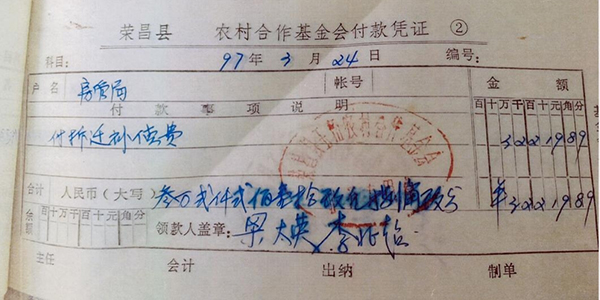 荣昌县 农村合作基金会付款凭证 ②
科目： 97年 3月 24日 编号：
户名 房管局 帐号 金额
付款事项说明 百十万千百十元角分
付拆迁补偿费 3221989
合计 人民币（大写）叁万弍仟弍佰壹拾玖元捌角玖分 ¥3221989
余额 百十万千百十元角分 领款人盖章：梁大英
主任 会计 出纳 制单